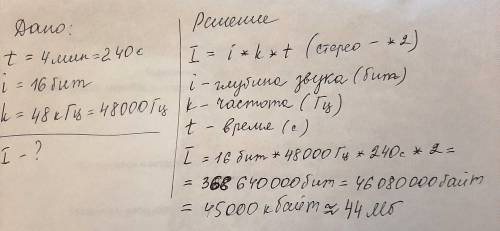 Дано:
t = 4мин = 240с
i = 16бит
k = 48кГц = 48000Гц
I - ?
Решение
I = i * k * t (стерео - *2)
i - глубина звука (бит)
k - частота (Гц)
t - время (с)
I = 16бит * 48000Гц * 240с * 2 =
= 368 640000бит = 46080000байт
= 45000кбайт ≈ 44Мб